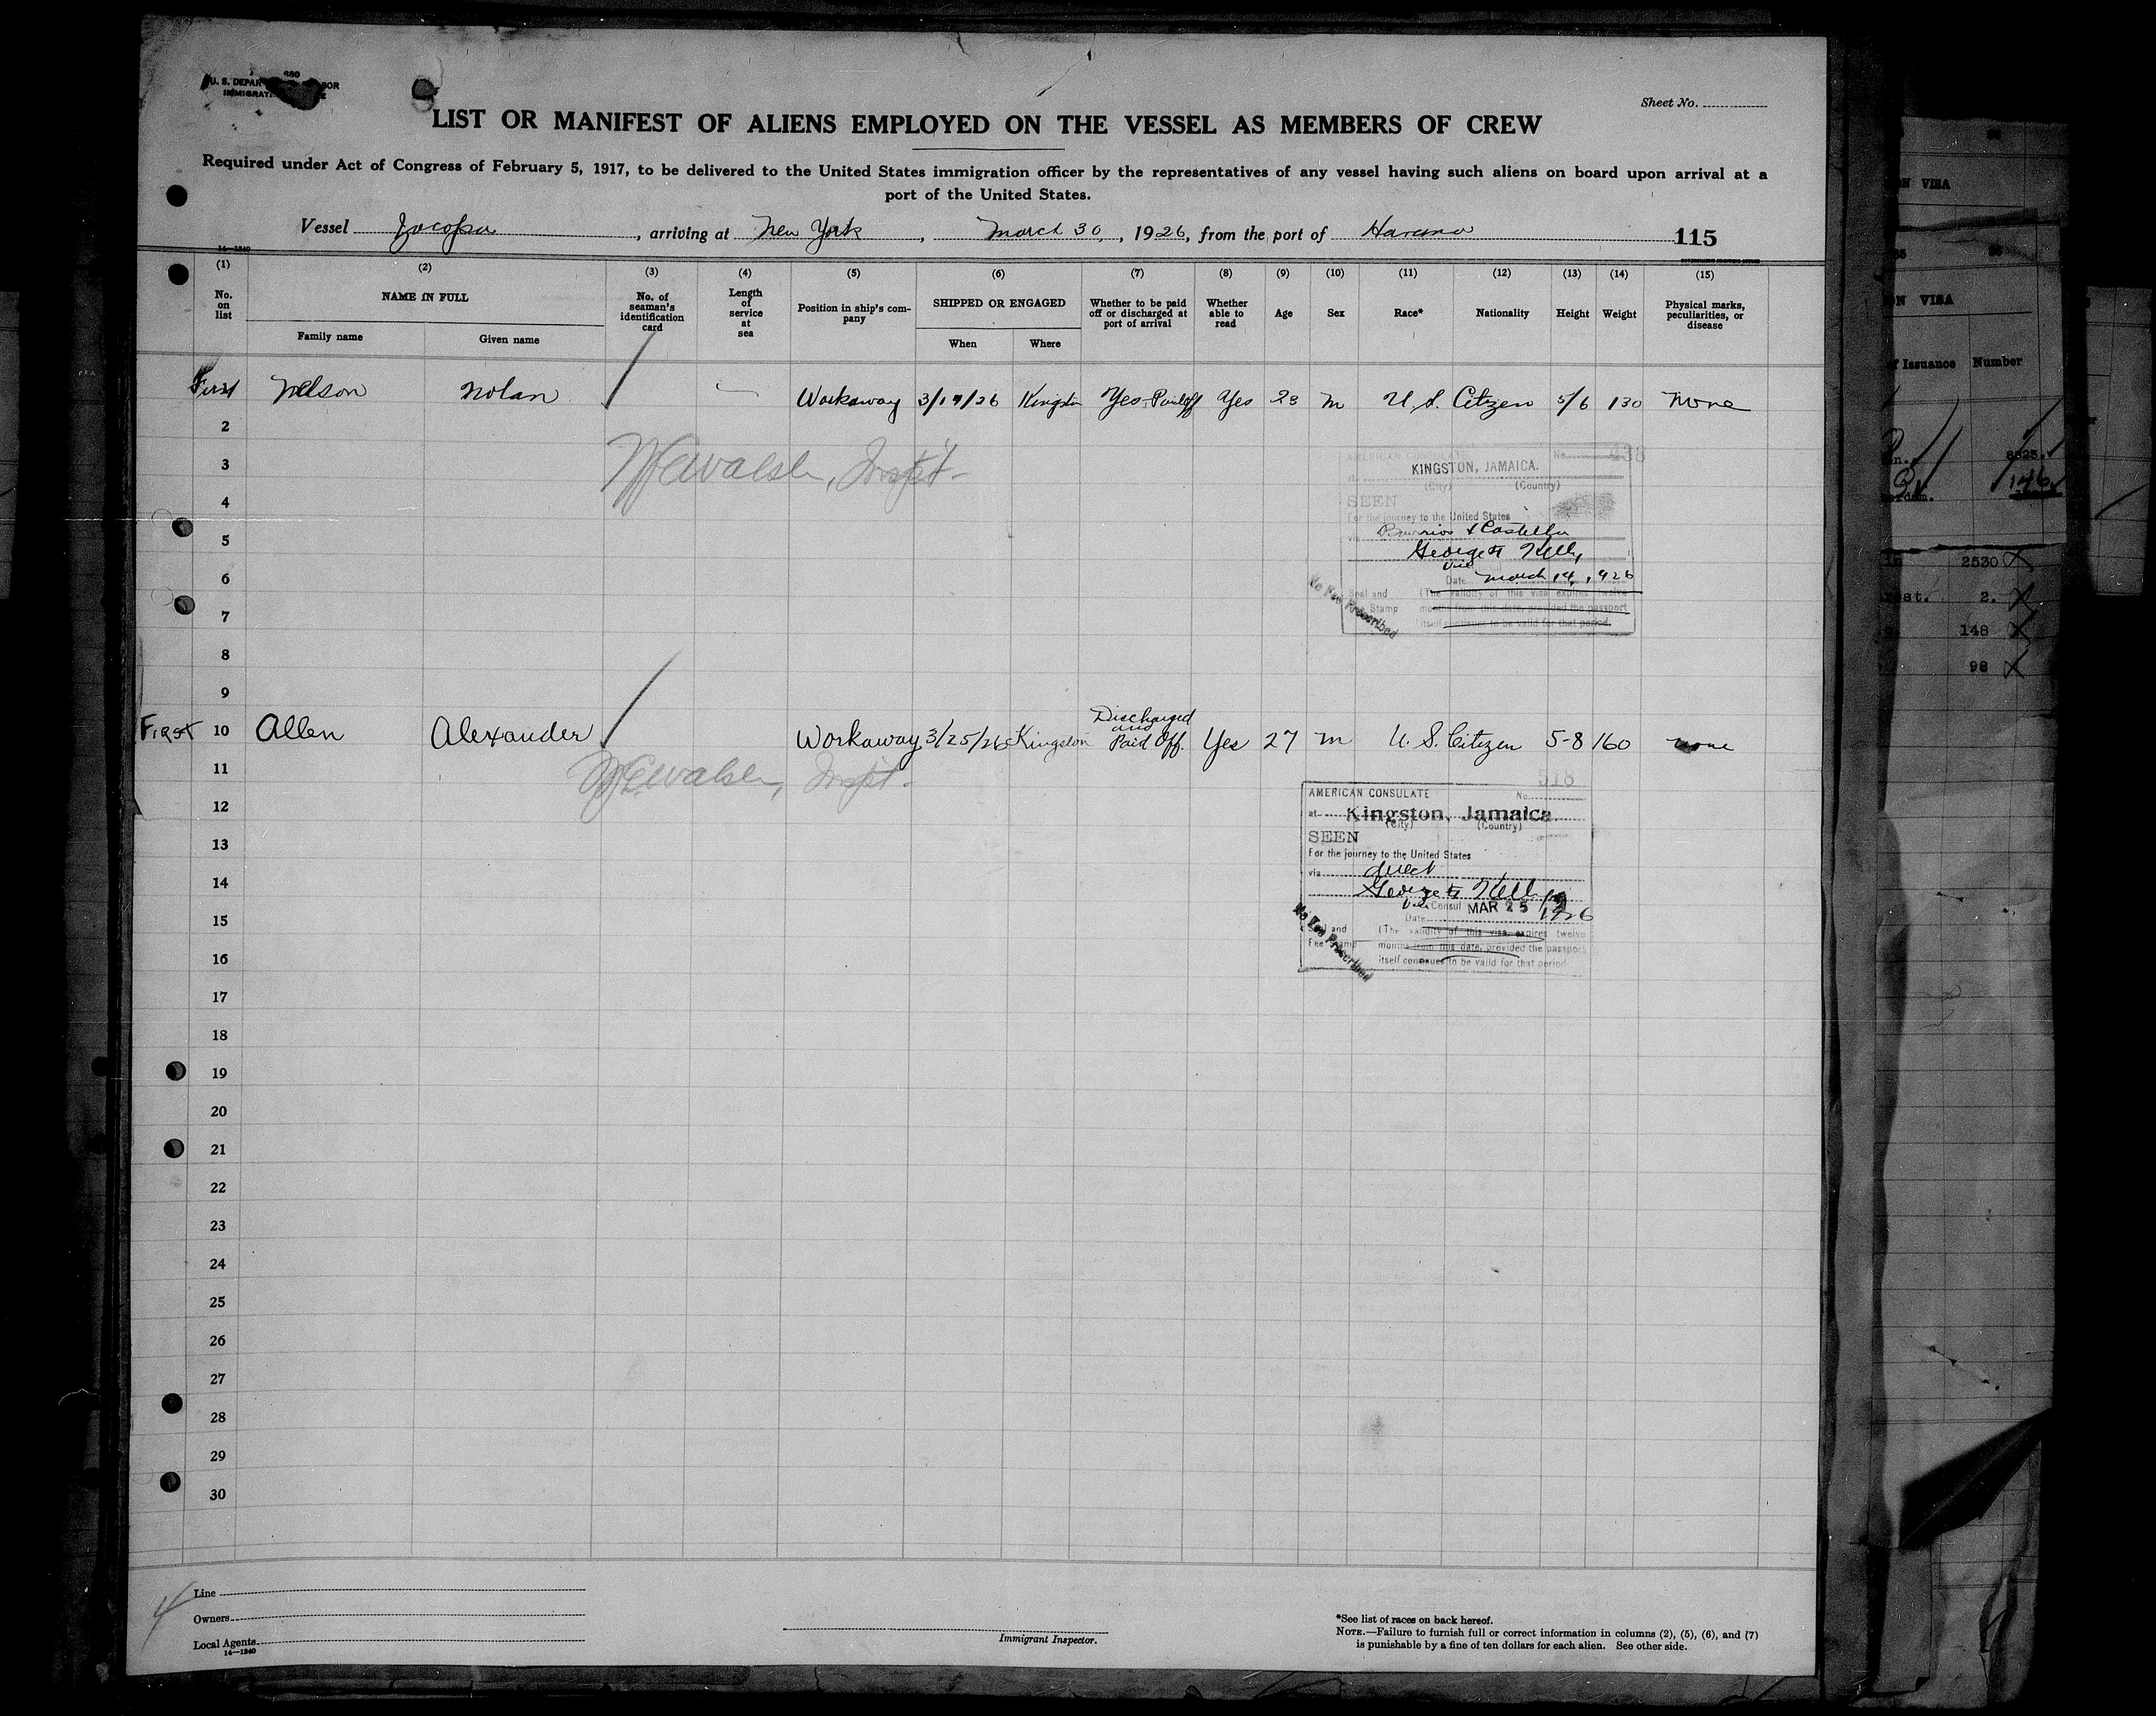 U. S. DEPAR BOR
IMMIGRATI
Sheet No.
LIST OR MANIFEST OF ALIENS EMPLOYED ON THE VESSEL AS MEMBERS OF CREW
Required under Act of Congress of February 5, 1917, to be delivered to the United States immigration officer by the representatives of any vessel having such aliens on board upon arrival at a
port of the United States.
Vessel Zacapa, arriving at New York, March 30, 1926, from the port of Havana 115
14—1240
(1) (2) (3) (4) (5) (6) (7) (8) (9) (10) (11) (12) (13) (14) (15)
No. on list
NAME IN FULL
Family name
Given name
No. of seaman's identification card
Length of service at sea
Position in ship's company
SHIPPED OR ENGAGED
When
Where
Whether to be paid off or discharged at port of arrival
Whether able to read
Age
Sex
Race*
Nationality
Height
Weight
Physical marks, peculiarities, or disease
First Nelson Nolan Workaway 3/14/26 Kingston Yes-Paid off Yes 23 m U. S. Citizen 5/6 130 None
2
3
4
5
6
7
8
9
First 10 Allen Alexander Workaway 3/25/26 Kingston Discharged and Paid Off. Yes 27 m U. S. Citizen 5-8 160 none
11
12
13
14
15
16
17
18
19
20
21
22
23
24
25
26
27
28
29
30
Walsh, Inspt.
AMERICAN CONSULATE No. 438
at KINGSTON, JAMAICA.
(City) (Country)
SEEN
For the journey to the United States
via Barrios & Castella
George H Kelly
Vice
Date March 14, 1926
Seal and (The validity of this visa expires twelve
Stamp months from this date, provided the passport
itself continues to be valid for that period.
No Fee Prescribed
Walsh, Inspt.
518
AMERICAN CONSULATE No.
at Kingston, Jamaica
(City) (Country)
SEEN
For the journey to the United States
via direct
George H Kelly
Vice Consul MAR 25 1926
Date
Seal and (The validity of this visa expires twelve
Fee Stamp months from this date, provided the passport
itself continues to be valid for that period.
No Fee Prescribed
4
Line
Owners
Local Agents
14—1240
Immigrant Inspector.
*See list of races on back hereof.
NOTE.—Failure to furnish full or correct information in columns (2), (5), (6), and (7)
is punishable by a fine of ten dollars for each alien. See other side.
ON VISA
ON VISA
of Issuance Number
8825
146
2530
2.
148
98